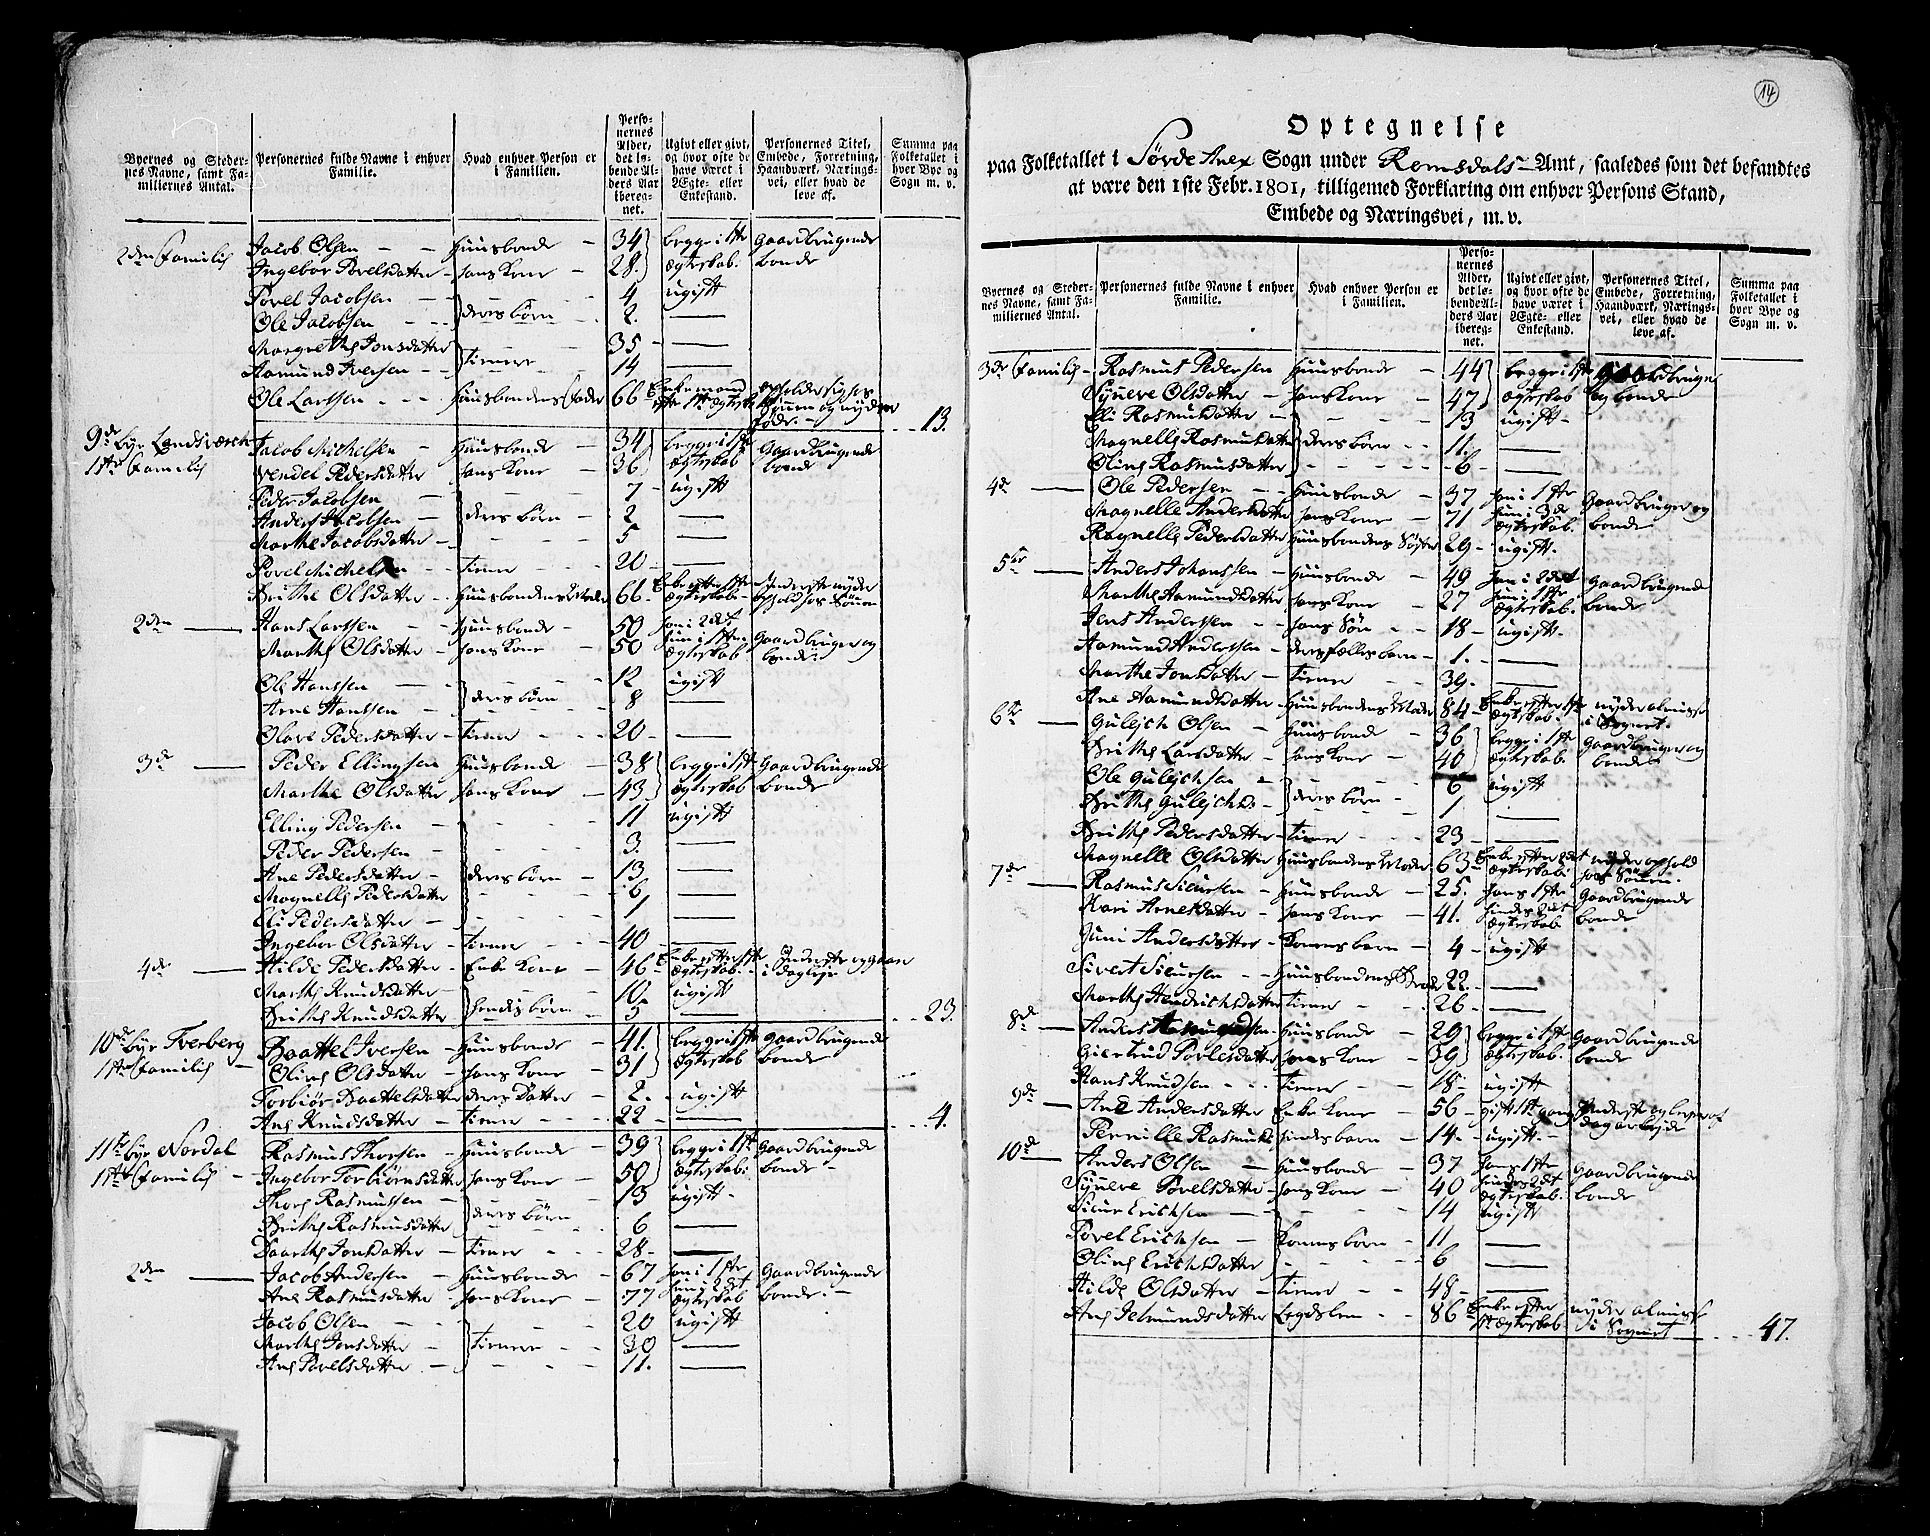 Byernes og Stedernes Navne, samt Familiernes Antal.
Personernes fulde Navne i enhver Familie.
Hvad enhver Person er i Familien.
Personernes Alder, det løbende Alders Aar iberegnet.
Ugivt eller givt, og hvor ofte de have været i Ægte- eller Enkestand.
Personernes Titel, Embede, Forretning, Haandværk, Næringsvei, eller hvad de leve af.
Summa paa Folketallet i hver Bye og Sogn m. v.
2den Familie Jacob Olsen Huusbonde 34 begge i 1ste Gaardbrugende
Ingebor Povelsdatter hans Kone 28 ægteskab. bonde
Povel Jacobsen 4 ugift
Ole Jacobsen deres börn 2
Margrethe Jonsdatter 35
Aamund Iversen tienere 14
Ole Larssen Huusbondens fader 66 Enkemand
efter 1ste ægteskab
13.
9de bÿe Landsværch Jacob Michelsen Huusbonde 34 begge i 1ste Gaardbrugende
1ste Familie Vendel Pedersdatter hans Kone 36 ægteskab bonde
Peder Jacobsen 7 ugift
Anders Jacobsen deres börn 2
Marthe Jacobsdatter 5
Povel Michelsen tiener 20
Brithe Olsdatter Huusbondens Moder 66
2den Hans Larssen Huusbonde 50 han i 2det
Marthe Olsdatter hans Kone 50 hun i 1ste ægteskab Gaardbruger og bonde
Ole Hanssen 12 ugift
Arne Hanssen deres börn 8
Olave Pedersdatter tiener 20
3de Peder Ellingsen Huusbonde 38 begge i 1ste Gaardbrugende
Marthe Olsdatter hans Kone 43 ægteskab bonde
Elling Pedersen 11 ugift
Peder Pedersen 3.
Ane Pedersdatter deres börn 13
Magnelle Pedersdatter 6
Eli Pedersdatter 1
Ingebor Olsdatter tiener 40
4de Hilde Pedersdatter Enke Kone 46 Enke efter 1ste ægteskab
Marthe Knudsdatter 10. ugift
Brithe Knudsdatter hendes börn 5
23.
10de bÿe Tverberg Baattel Iversen Huusbonde 41. begge i 1ste Gaardbrugende
1ste Familie Oline Olsdatter hans Kone 31 ægteskab bonde
Torbiör Baattelsdatter deres Datter 2. ugift
Ane Knudsdatter tiener 22
4.
11te bÿe Nordal Rasmus Thorsen Huusbonde 39 begge i 1ste Gaardbrugende
1ste Familie Ingebor Torbiörnsdatter hans Kone 50 ægteskab: bonde
Thore Rasmussen 13 ugift
Brithe Rasmusdatter deres börn 6
Baarthe Jonsdatter tiener 28
2den Jacob Andersen Huusbonde 67 han i 1ste Gaardbrugende
Ane Rasmusdatter hans Kone 77 hun i 2det ægteskab bonde
Jacob Olsen 20 ugift
Marthe Jonsdatter tienere 30
Ane Povelsdatter 11.
14
Optegnelse
paa Folketallet i Sövde Anex Sogn under Romsdals Amt, saaledes som det befandtes
at være den 1ste Febr. 1801, tilligemed Forklaring om enhver Persons Stand,
Embede og Næringsvei, m. v.
Byernes og Stedernes Navne, samt Familiernes Antal.
Personernes fulde Navne i enhver Familie.
Hvad enhver Person er i Familien.
Personernes Alder, det løbende Alders Aar iberegnet.
Ugivt eller givt, og hvor ofte de have været i Ægte- eller Enkestand.
Personernes Titel, Embede, Forretning, Haandværk, Næringsvei, eller hvad de leve af.
Summa paa Folketallet i hver Bye og Sogn m. v.
3de Familie Rasmus Pedersen Huusbonde 44 begge i 1ste Gaardbruger
Synneve Olsdatter hans Kone 47 ægteskab og bonde
Eli Rasmusdatter 13 ugift
Magnelle Rasmusdatter deres börn 11.
Oline Rasmusdatter 6
4de Ole Pedersen Huusbonde 37 han i 1ste Gaardbruger og
Magnelle Andersdatter hans Kone 71 hun i 3de ægteskab. bonde
Ragnelle Pedersdatter Huusbondens Söster 29 ugift
5te Anders Johanssen Huusbonde 49 han i 2det Gaardbrugende
Marthe Aamundsdatter hans Kone 27 hun i 1ste ægteskab. bonde
Jens Anderssen hans Sön 18 ugift
Aamund Anderssen deres fælles barn 1.
Marthe Jonsdatter tiener 39.
Ane Aamundsdatter Huusbondens Moder 84 Enke efter 1ste ægteskab. nyder almisse i Sognet.
6te Guleich Olsen Huusbonde 36 begge i 1ste Gaardbruger og
Brithe Larsdatter hans Kone 40 ægteskab. bonde
Ole Guleichsen 6 ugift
Brithe Guleichsd. deres börn 1
Brithe Pedersdatter tiener 23
Magnelle Olsdatter Huusbondens Moder 63 Enke efter 2det ægteskab: nyder ophold
7de Rasmus Siurssen Huusbonde 25. hans 1ste Gaardbrugende
Kari Arnesdatter hans Kone 41. hindes 2det ægteskab bonde
Juni Andersdatter Konens barn 4 ugift
Sivert Siurssen Huusbondens Broder 22.
Marthe Hendrichsdatter tiener 26
8de Anders Aamundsen Huusbonde 29 begge i 1ste Gaardbrugende
Giertrud Povlesdatter hans Kone 39 ægteskab. bonde
Hans Knudsen tiener 18 ugift
9de Ane Andersdatter Enke Kone 56 gift 1ste gang Inderste og lever af dagarbejde
Pernille Rasmusd. hindes barn 14 ugift
10de Anders Olsen Huusbonde 37 hans 1ste Gaardbrugende
Synneve Povelsdatter hans Kone 40 hindes 2det ægteskab. bonde
Siur Erichsen 14 ugift
Povel Erichsen Konens börn 11
Oline Erichsdatter 6
Hilde Olsdatter tiener 48
Ane Jetmundsdatter Legdslem 86 Enke efter 1ste ægteskab nyder almisse i Sognet
47.